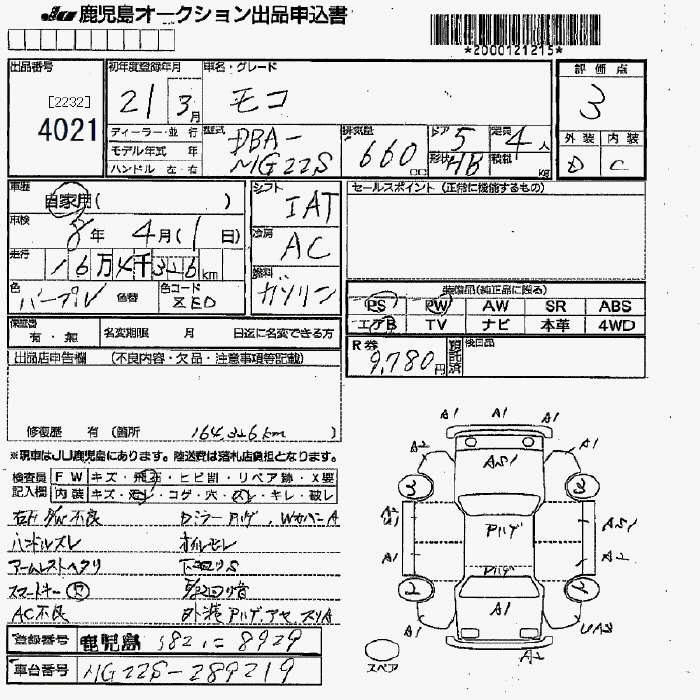 JU 鹿児島オークション出品申込書
*2000121215*
出品番号
[2232]
4021
初年度登録年月
21 3月
車名・グレード
モコ
ディーラー・並 行
モデル年式 年
ハンドル 左・右
型式
DBA-
MG22S
排気量
660 cc
ドア 5
形状 HB
定員 4人
積載 kg
評価点
3
外装 内装
D C
車歴
自家用( )
車検
8年 4月( 1日)
走行
16万4千326km
色 パープル 色替
色コード ZED
シフト
IAT
冷房
AC
燃料
ガソリン
セールスポイント (正常に機能するもの)
装備品(純正品に限る)
PS PW AW SR ABS
エアB TV ナビ 本革 4WD
保証書
有・無
名変期限 月 日迄に名変できる方
R券
9,780円
預託済
検白品
出品店申告欄 (不良内容・欠品・注意事項等記載)
修復歴 有 (箇所 164,326km )
※現車はJU鹿児島にあります。陸送費は落札店負担となります。
検査員
記入欄
FW キズ・飛石・ヒビ割・リペア跡・X要
内装 キズ・汚レ・コゲ・穴・スレ・キレ・破レ
ハンドルスレ オイルモレ
アームレストヘタリ 下回りS
スマートキー
AC不良 外装
登録番号 鹿児島 582 に 8929
車台番号 MG22S-289219
A1 A1 A1
A2 A1
AS1
3 3
A2
Pハゲ
AS1
A1 A2
Pハゲ
A1
A1 UA3
スペア
A2